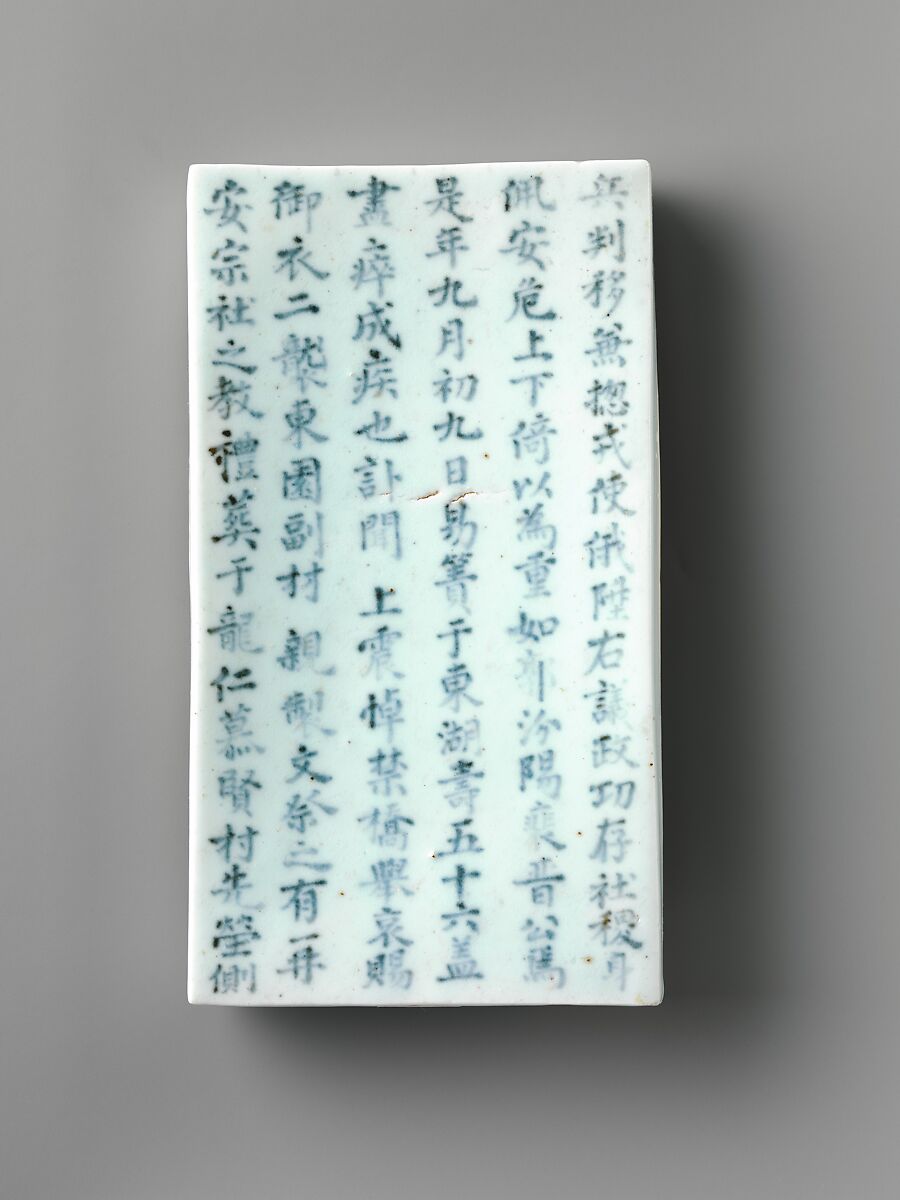 兵判移兼摠戎使俄陞右議政功存社稷身
佩安危上下倚以為重如郭汾陽裵晋公焉
是年九月初九日易簀于東湖壽五十六盖
盡瘁成疾也訃聞 上震悼禁橋擧哀賜
御衣二襲東園副材 親製文祭之有再
安宗社之教禮葬于龍仁慕賢村先塋側